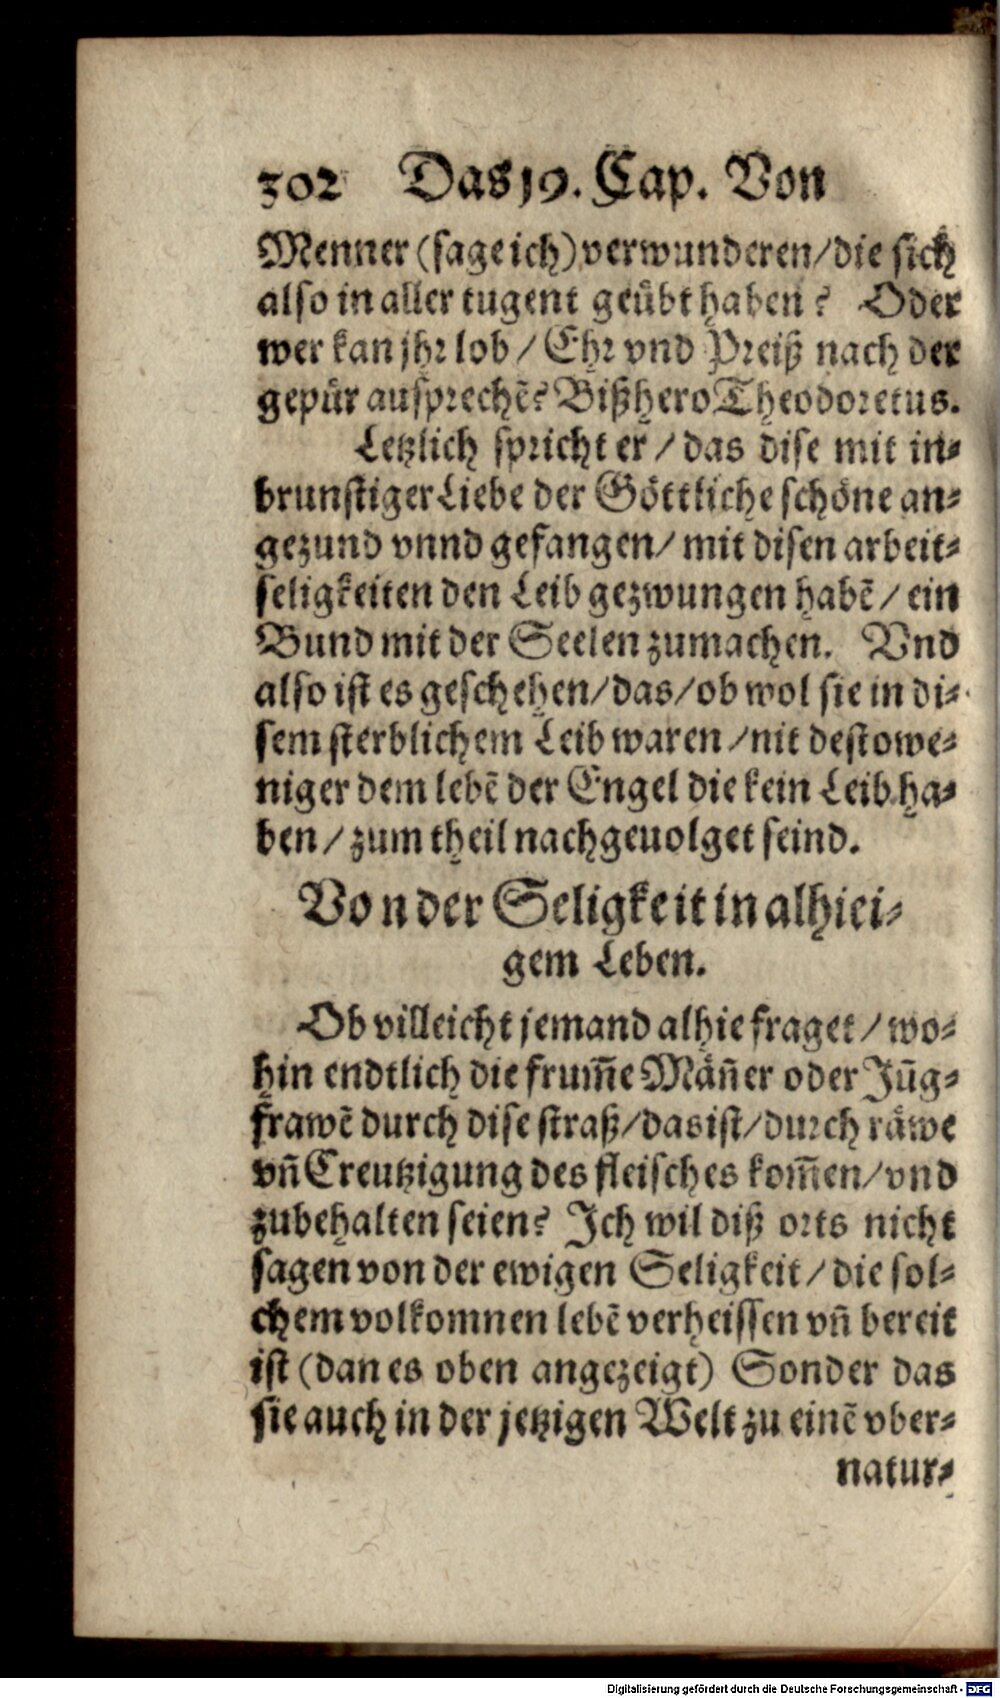 302 Das 19. Cap. Von
Menner (sage ich) verwunderen/die sich
also in aller tugent geübt haben? Oder
wer kan jhr lob / Ehr vnd Preiß nach der
gepür ausprechẽ? Bißhero Theodoretus.
Letzlich spricht er / das dise mit in-
brunstiger Liebe der Göttliche schöne an-
gezund vnnd gefangen/ mit disen arbeit-
seligkeiten den Leib gezwungen habẽ / ein
Bund mit der Seelen zumachen. Vnd
also ist es geschehen/das/ob wol sie in di-
sem sterblichem Leib waren /nit destowe-
niger dem lebẽ der Engel die kein Leib ha-
ben / zum theil nachgeuolget seind.
Von der Seligkeit in alhiei-
gem Leben.
Ob villeicht jemand alhie fraget / wo-
hin endtlich die frum̃e Mäñer oder Jũg-
frawẽ durch dise straß/das ist/durch räwe
vñ Creutzigung des fleisches kom̃en/vnd
zubehalten seien? Ich wil diß orts nicht
sagen von der ewigen Seligkeit / die sol-
chem volkomnen lebẽ verheissen vñ bereit
ist (dan es oben angezeigt) Sonder das
sie auch in der jetzigen Welt zu einẽ vber-
natur-
Digitalisierung gefördert durch die Deutsche Forschungsgemeinschaft - DFG